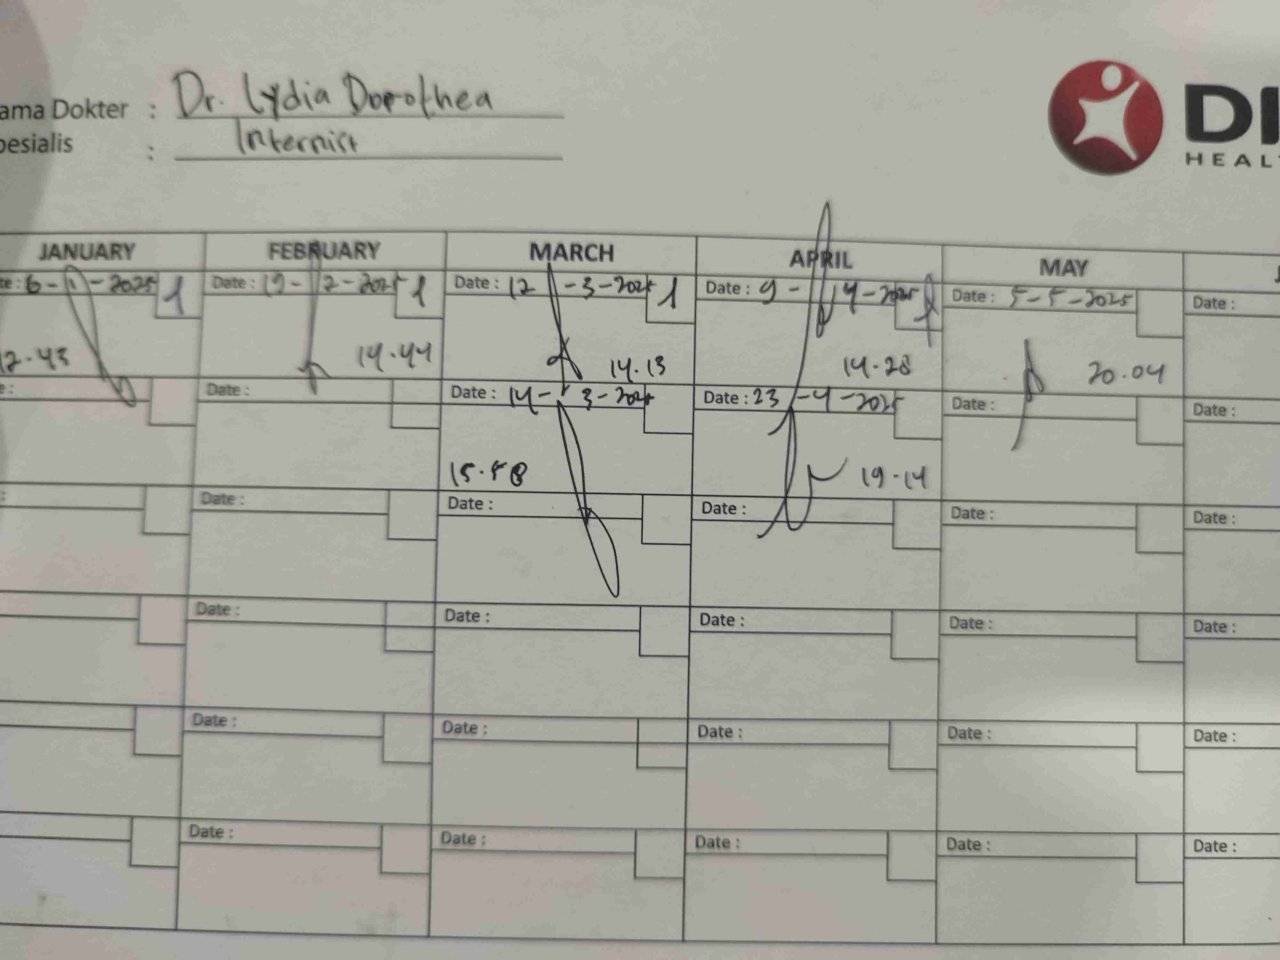 ama Dokter : Dr. Lydia Dorothea
pesialis : Internist
DI
HEAL
JANUARY FEBRUARY MARCH APRIL MAY
te: 6-1-2025 1 Date: 12-2-2025 1 Date: 12-3-2025 1 Date: 9-4-2025 1 Date: 5-5-2025 Date:
12.43 14.44 14.13 14.28 20.04
e: Date: Date: 14-3-2025 Date: 23-4-2025 Date: Date:
15.58 19.14
: Date: Date: Date: Date: Date:
Date: Date: Date: Date: Date:
Date: Date: Date: Date: Date:
Date: Date: Date: Date: Date: